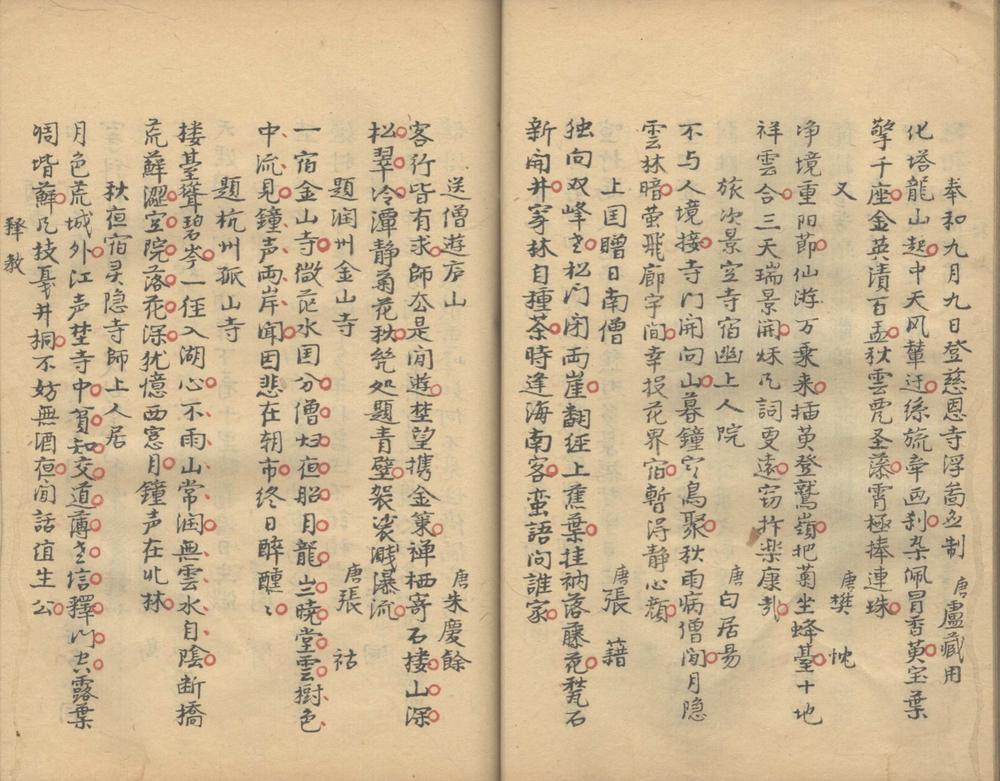 奉和九月九日登慈恩寺浮啚应制 唐 盧藏用
化塔龍山起中天風輦迂綵旒牵画刹杂佩冒香萸宝葉
擎千座金英漬百盂秋雲飛圣藻霄極捧連珠
又 唐 樊忱
净境重阳莭仙游万乘来插萸登鷲嶺把菊坐蜂臺十地
祥雲合三天瑞景開秌风詞更遠窃抃楽康哉
旅次景空寺宿幽上人院 唐 白居昜
不与人境接寺门開向山暮鐘寒鳥聚秋雨病僧閒月隐
雲林暗萤飛廊宇间幸投花界宿暫淂静心顔
上囯贈日南僧 唐 張籍
独向双峰老松门闭両崖翻経上蕉葉挂衲落藤花甃石
新開井穿林自種茶時逢海南客蛮語问誰家
送僧遊庐山 唐 朱慶餘
客行皆有求師公是閒遊埜望携金策禅栖寄石楼山深
松翠冷潭静菊花秋㡬处題青壁袈裟溅瀑流
題润州金山寺 唐 張祜
一宿金山寺微茫水囯分僧归夜船月龍出曉堂雲樹色
中流見鐘声両岸闻因悲在朝市終日醉醺〻
題杭州孤山寺
楼臺聳碧岑一徑入湖心不雨山常润無雲水自陰断橋
荒蘚澀空院落花深犹憶西窓月鐘声在北林
秋夜宿灵隐寺師上人居
月色荒城外江声埜寺中貧知交道薄老信釋门空露葉
凋堦蘚风枝戛井桐不妨無酒夜閒話值生公
釋教